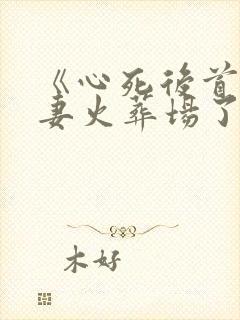 《心死後首
妻火葬場了
木好